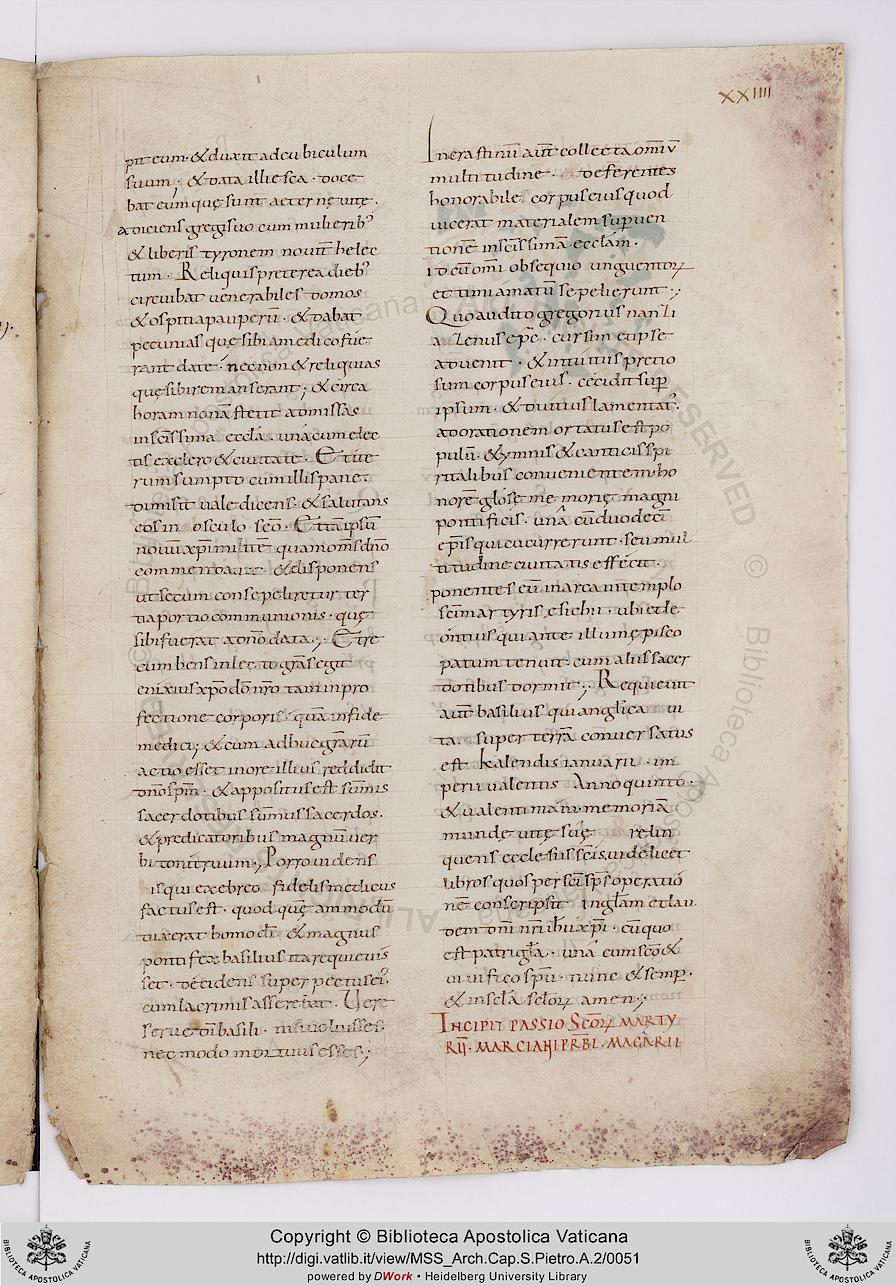 XXIIII
pit eum · & duxit ad cubiculum
suum ; & data illi esca · doce
bat eum quę sunt aeternę vitę .
adiciens gregi suo cum mulierib᾿
& liberis tyronem novit helec
tum · Reliquis preterea dieb᾿
circuibat venerabiles domos
& ospitia pauperū · & dabat
pecunias que sibi a medico fue
rant date · nec non & reliquias
quę sibi remanserant ; & circa
horam nonā stetit ad missas
in scissima eccła · una cum elec
tis ex clero & civitate · Et ite
rum sumpto cum illis pane ·
dimisit vale dicens · & salutans
eos in osculo scō · Etiā ipsū
novū xp̄i militē
commendavit · & disponens
ut secum consepeliretur ter
tia portio communionis · quę
sibi fuerat a dn̄o data ·, Et re
cumbens in lecto gr̄as egit
enixius xp̄o dō nr̄o tam in pro
fectione corporis · quā in fide
medici ; & cum adhuc gr̄arū
actio esset in ore illius reddidit
dn̄o sp̄m · & appositus est sum̄is
sacerdotibus sum̄us sacerdos ·
& predicatoribus magnū ver
bi tonitruum ·, Porro videns
is qui ex ebreo fidelis medicus
factus est · quod quę ammodū
dixerat homo dī · & magnus
pontifex basilius ita requievis
set · decidens super pectus ei᾿ ·
cum lacrimis asserebat · Vere
serve dī basili · nisi voluisses
nec modo mortuus esses ·,
In crastinū aūt collecta om̄i
multitudine deferentes
honorabile corpus eius quod
vicerat materialem superven
tionē in scissimā eccłam ·
id cū om̄i obsequio unguentoꝝ
et timiamatū sepelierunt ·,
Quo audito gregorius nanzi
azenus ep̄c · cursim et ipse
advenit · & intuitus pretio
sum corpus eius · cecidit sup̄
ipsum · & diutius lamentat᾿ ·
ad orationem ortatus est po
pulū · & ymnis & canticis spi
ritalibus convenientem ho
norē
pontificis · unā cū duodeci
ep̄is qui cucurrerunt · seu mul
titudine civitatis effecit ·
ponentes eū in arca in templo
scī martyris esichii · ubi et le
ontius qui ante illum episco
patum tenuit · cum aliis sacer
dotibus dormit ·, Requievit
aūt basilius qui anglica vi
ta · super terrā conversatus
est kalendis ianuarii · im
perii valentis Anno quinto ·
& valentiniani · memoriā
mundę vitę suę relin
quens ecclesiis scīs · videlicet
libros quos per scī sp̄s operatio
nē conscripsit In glam et lau
dem dn̄i nr̄i ihū xp̄i · cū quo
est patri gła · unā cum scō &
vivifico sp̄u · nunc & semp̄ ·
& in scła scłoꝝ amen ·,
INCIPIT PASSIO SCōꝝ MARTY
RŪ · MARCIANI PRBI · MACARII
Copyright © Biblioteca Apostolica Vaticana
http://digi.vatlib.it/view/MSS_Arch.Cap.S.Pietro.A.2/0051
powered by DWork • Heidelberg University Library
BIBLIOTECA APOSTOLICA VATICANA
BIBLIOTECA APOSTOLICA VATICANA